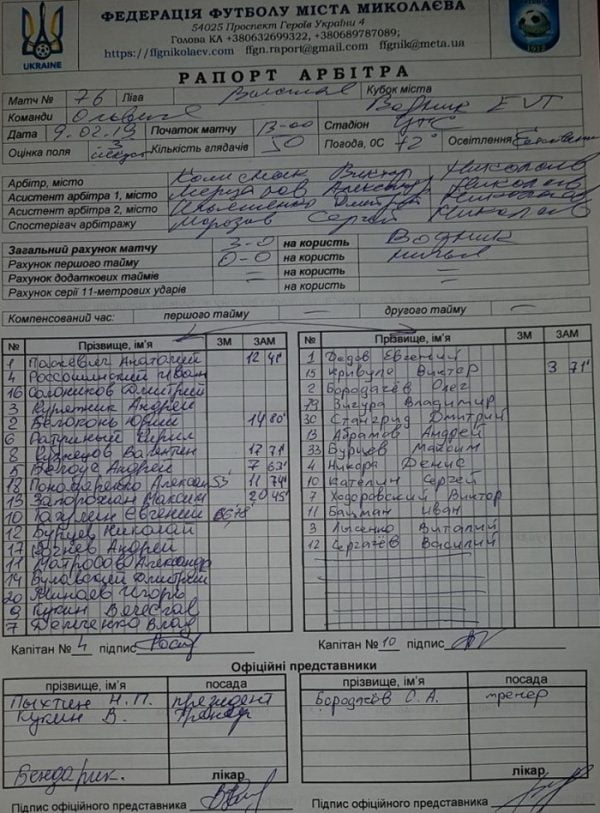 ФЕДЕРАЦІЯ ФУТБОЛУ МІСТА МИКОЛАЄВА
54025 Проспект Героїв України 4
Голова КА +380632699322, +380689787089;
https://ffgnikolaev.com ffgn.raport@gmail.com ffgnik@meta.ua
UKRAINE
РАПОРТ АРБІТРА
Матч № 76 Ліга Кубок міста
Команди Водник EVT
Дата 9.02.19 Початок матчу 13-00 Стадион
Оцінка поля 3 Кількість глядачів 50 Погода, 0С Освітлення
Арбітр, місто Виктор Николаев
Асистент арбітра 1, місто Александр Николаев
Асистент арбітра 2, місто Дмитрий Николаев
Спостерігач арбітражу Морозов Сергей Николаев
Загальний рахунок матчу 3-0 на користь Водник
Рахунок першого тайму 0-0 на користь ничья
Рахунок додаткових таймів = на користь =
Рахунок серії 11-метрових ударів = на користь =
Компенсований час: першого тайму — другого тайму —
№ Прізвище, ім'я ЗМ ЗАМ
1 Пашкевич Анатолий 12 41'
4 Россошинский Иван
16 Солоников Дмитрий
3 Курятник Андрей
2 Белоконь Юрий 14 80'
6 Ратриный Кирил
8 Кузнецов Валентин 17 71'
5 Белоус Андрей 7 63'
18 Пономаренко Алексан 53' 11 74'
13 Запорожан Максим 20 45'
10 Евгений
12 Бурцев Николай
17 Андрей
11 Матросов Александр
14 Булавский Дмитрий
20 Минаев Игорь
9 Кукин Вячеслав
7 Демченко Влад
№ Прізвище, ім'я ЗМ ЗАМ
1 Дедов Евгений
15 Кривуля Виктор 3 71'
2 Бородачёв Олег
79 Вигура Владимир
30 Дмитрий
13 Абрамов Андрей
33 Бурцев Максим
4 Никора Денис
10 Кателин Сергей
7 Ходоровский Виктор
11 Бацман Иван
3 Лысенко Виталий
12 Сергачёв Василий
Капітан № 4 підпис
Капітан № 10 підпис
Офіційні представники
прізвище, ім'я посада
Пыхтин Н.П. президент
Кукин В. тренер
лікар
Підпис офіційного представника
прізвище, ім'я посада
Бородачёв О.А. тренер
лікар
Підпис офіційного представника